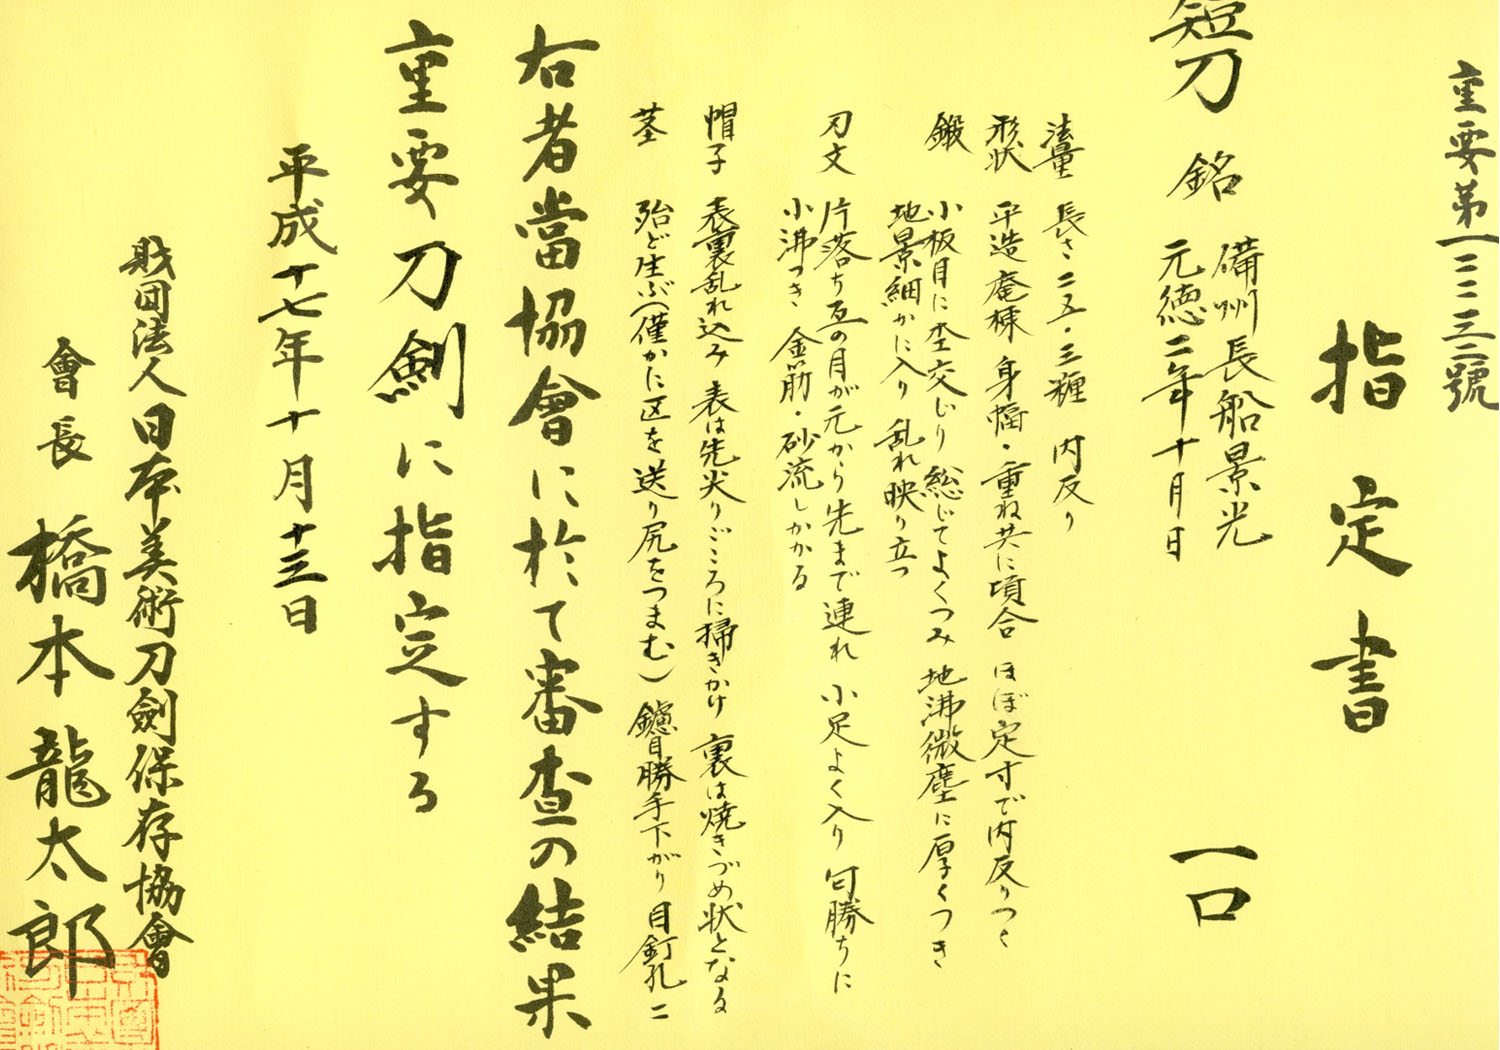 重要第一二三三二號
指定書
短刀 銘 備州長船景光 一口
元徳二年十月日
法量 長さ 二五・三糎 内反り
形状 平造 庵棟 身幅・重ね共に頃合 ほぼ定寸で内反りつく
鍛 小板目に杢交じり 総じてよくつみ 地沸微塵に厚くつき
地景細かに入り 乱れ映り立つ
刃文 片落ち互の目が元から先まで連れ 小足よく入り 匂勝ちに
小沸つき 金筋・砂流しかかる
帽子 表裏乱れ込み 表は先尖りごころに掃きかけ 裏は焼きづめ状となる
茎 殆ど生ぶ(僅かに区を送り尻をつまむ) 鑢目勝手下がり 目釘孔二
右者當協會に於て審査の結果
重要刀剣に指定する
平成十七年十月十三日
財団法人日本美術刀劍保存協會
會長 橋本龍太郎